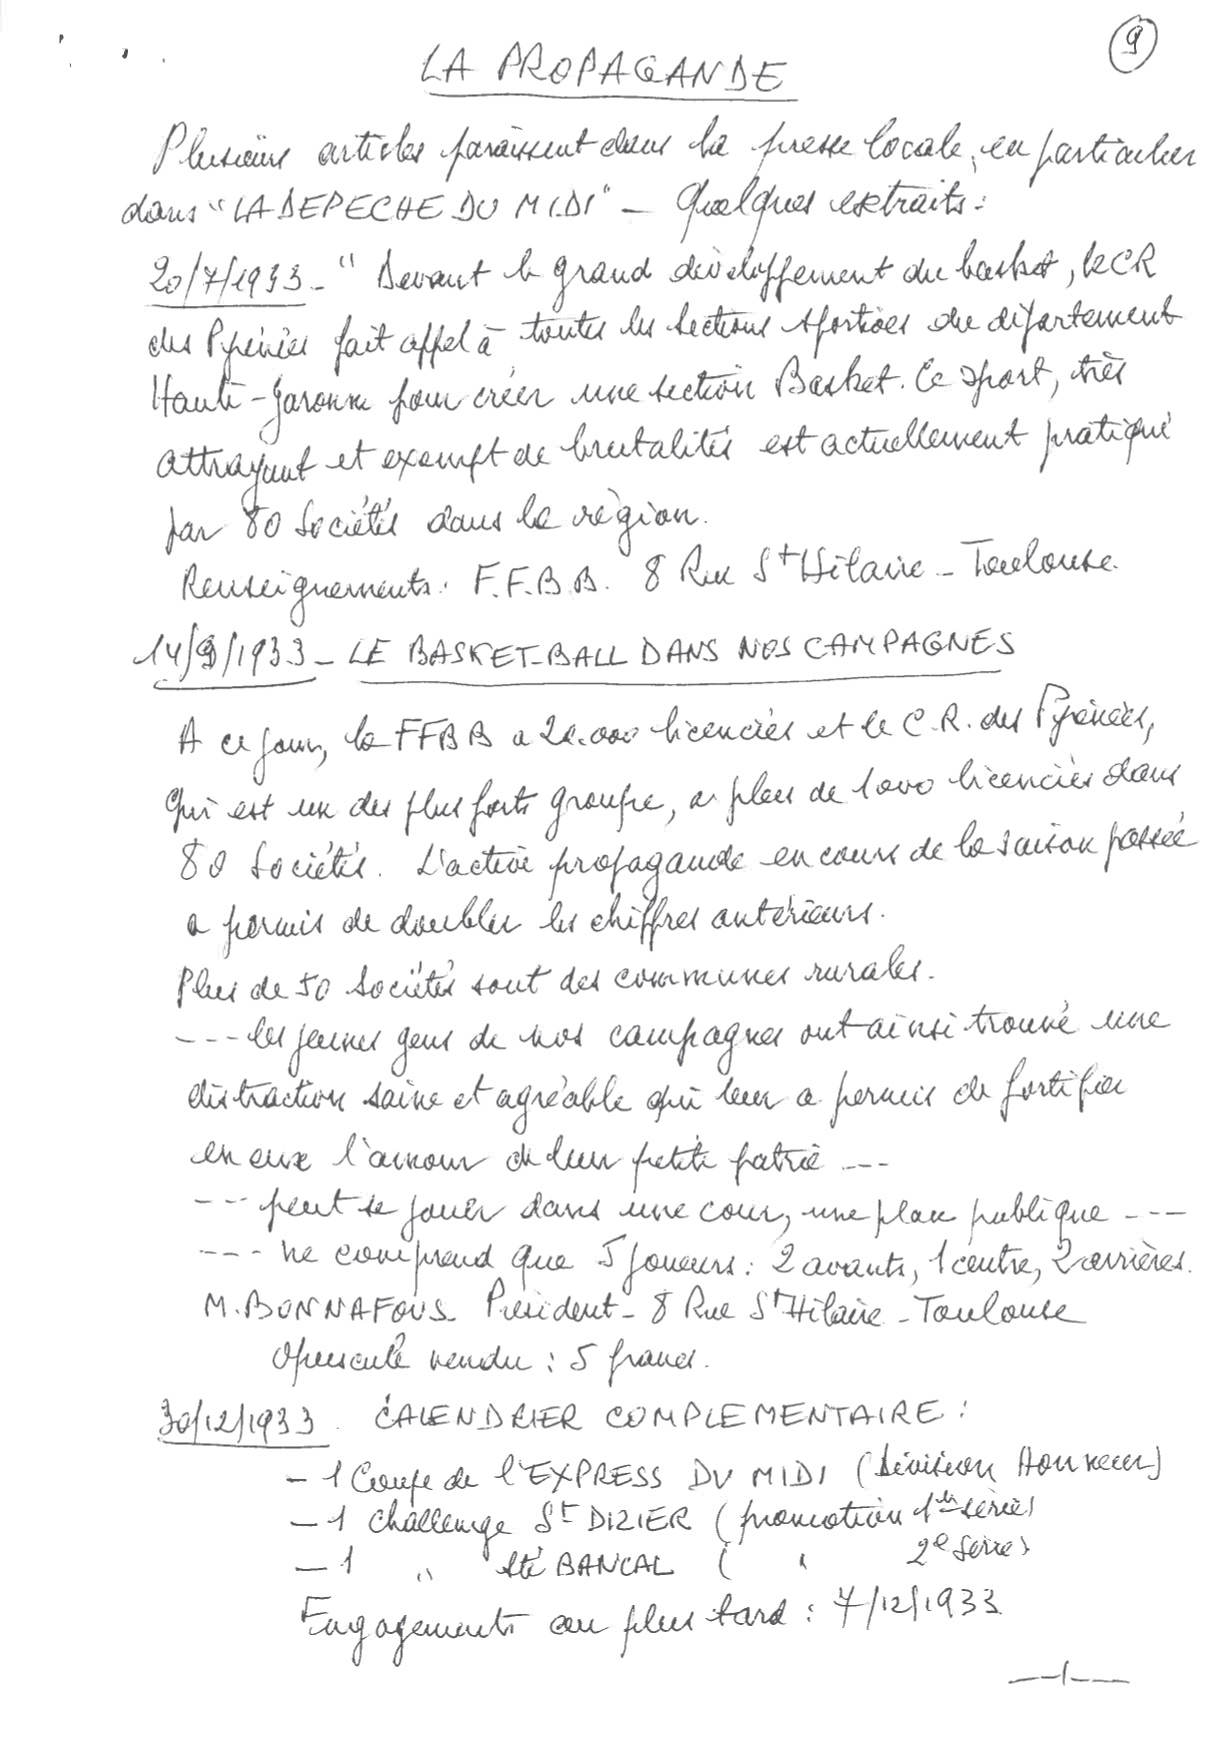 9
LA PROPAGANDE
Plusieurs articles paraissent dans la presse locale, en particulier
dans "LA DEPECHE DU MIDI" - Quelques extraits :
20/7/1933 - " Devant le grand développement du basket, le CR
des Pyrénées fait appel à toutes les sections sportives du département
Haute-Garonne pour créer une section Basket. Ce sport, très
attrayant et exempt de brutalités est actuellement pratiqué
par 80 Sociétés dans la région.
Renseignements : F.F.B.B. 8 Rue St Hilaire - Toulouse.
14/9/1933 - LE BASKET-BALL DANS NOS CAMPAGNES
A ce jour, la FFBB a 20.000 licenciés et le C.R. des Pyrénées,
qui est un des plus forts groupe, a plus de 1000 licenciés dans
80 Sociétés. L'active propagande en cours de la saison passée
a permis de doubler les chiffres antérieurs.
Plus de 50 Sociétés sont des communes rurales.
--- les jeunes gens de nos campagnes ont ainsi trouvé une
distraction saine et agréable qui leur a permis de fortifier
en eux l'amour de leur petite patrie ---
--- peut se jouer dans une cour, une place publique ---
--- ne comprend que 5 joueurs : 2 avants, 1 centre, 2 arrières.
M. BONNAFOUS Président - 8 Rue St Hilaire - Toulouse
Opuscule vendu : 5 francs.
30/12/1933 . CALENDRIER COMPLEMENTAIRE :
- 1 Coupe de l'EXPRESS DU MIDI (Division Honneur)
- 1 Challenge St DIZIER (promotion 1ère séries)
- 1 " Sté BANCAL ( " 2e séries
Engagements au plus tard : 7/12/1933
--/---